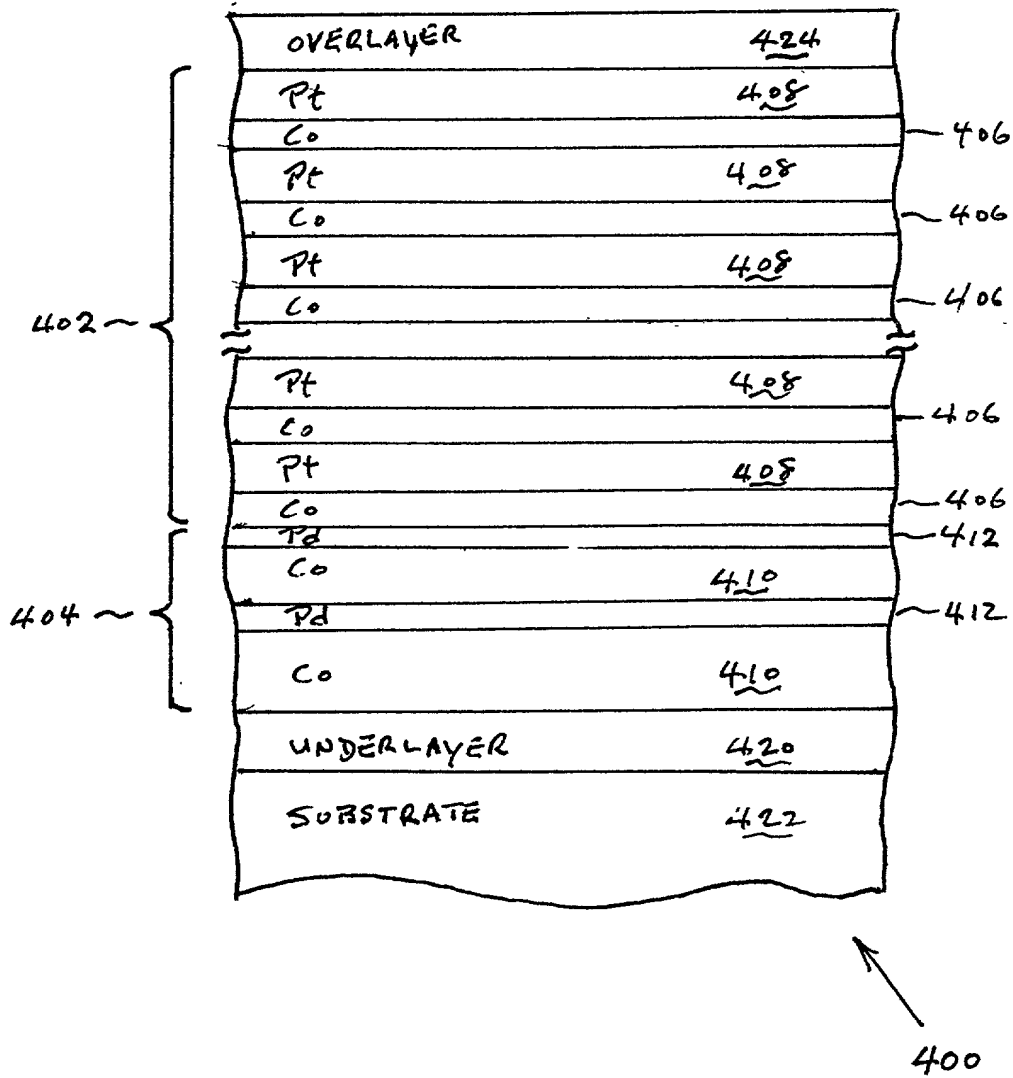 OVERLAYER 424
Pt 408
Co 406
Pt 408
Co 406
Pt 408
Co 406
402
Pt 408
Co 406
Pt 408
Co 406
Pd 412
Co 410
404 Pd 412
Co 410
UNDERLAYER 420
SUBSTRATE 422
400